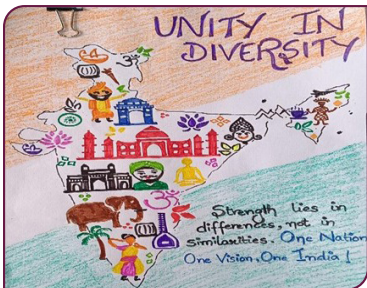 UNITY IN
DIVERSITY
ॐ
ॐ
Strength lies in
differences, not in
similarities. One Nation
One Vision, One India !